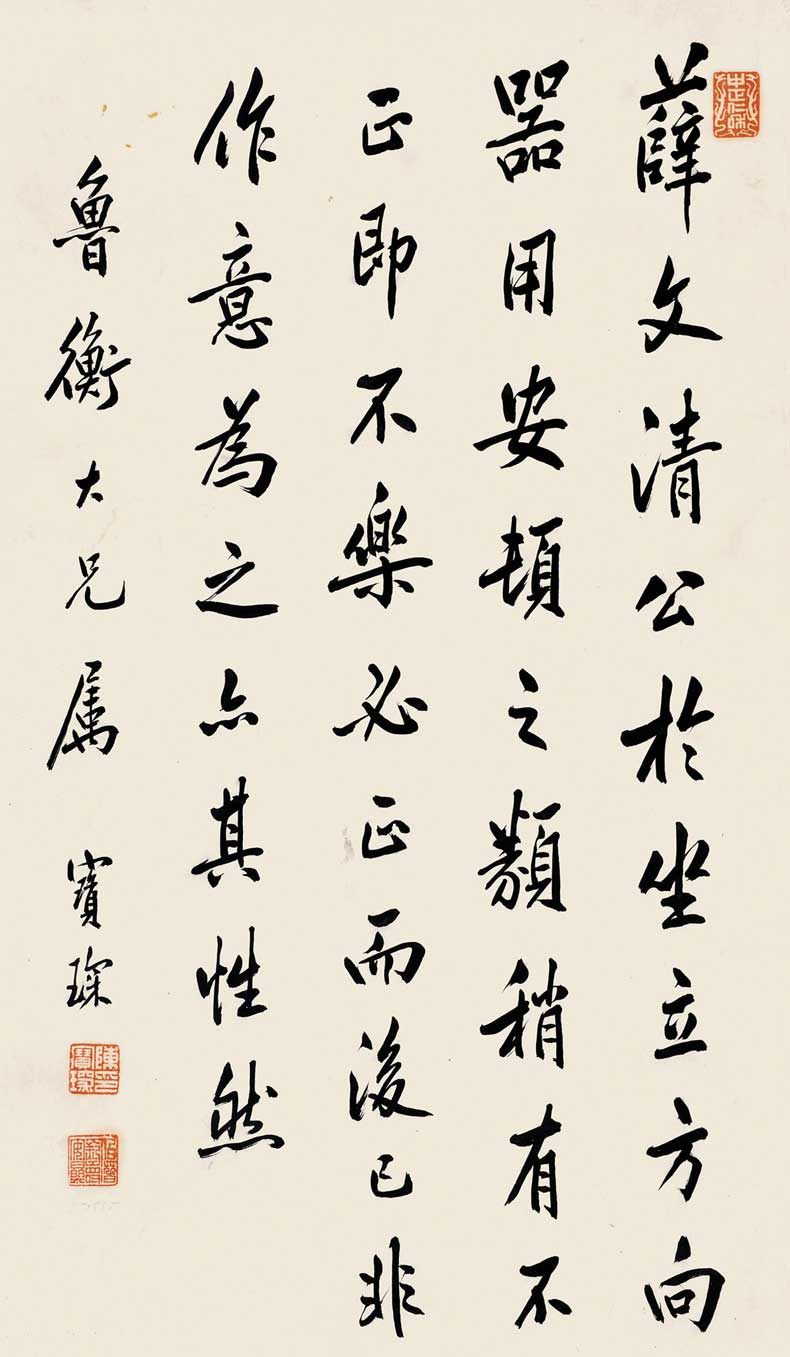 薛文清公於坐立方向
器用安頓之類稍有不
正即不樂必正而後已非
作意為之亦其性然
魯衡大兄属 寶琛
陳寶琛印